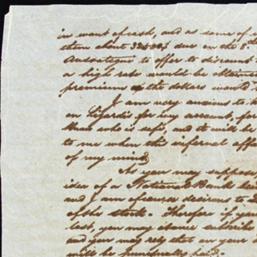 in want of cash, and as some of
them about due on the 8th
to offer to discount
a high rate would be
premium the dollars would
I am very anxious to
on Lizardi for my account, for
than who is safe, and it will be
to me when the infernal affair
of my mind.
As you may suppose,
idea of a National Bank
and I am of course desirous to
of the stock. Therefore if you
last, you may itance subscribe
and you may rely that on your
will be punctually paid.